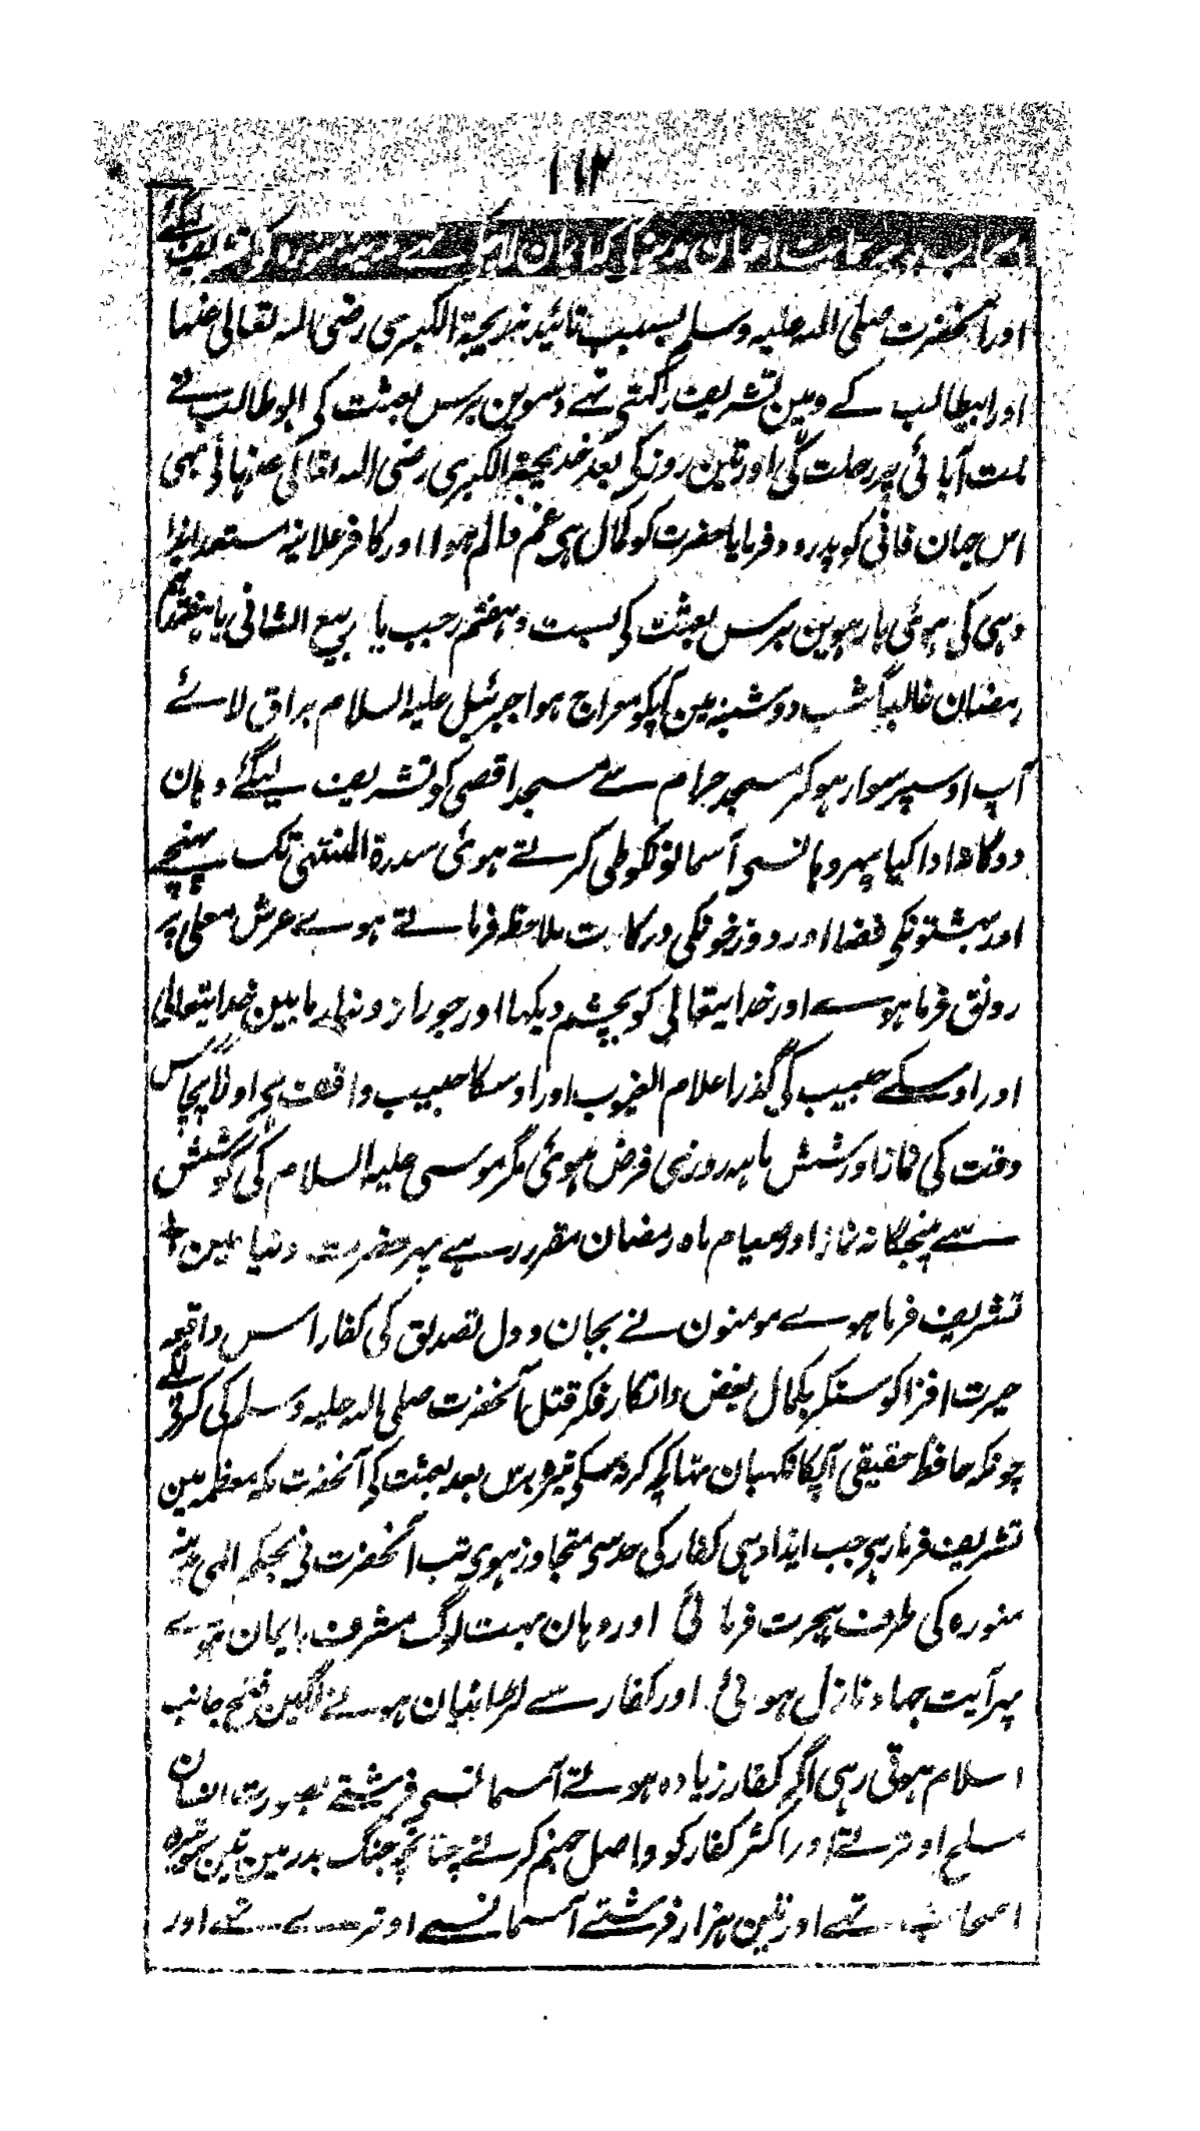 ۱۱۲
اور آنحضرت صلی اللہ علیہ وسلم بسبب تائید خدیجۃ الکبری رضی اللہ تعالی عنہا
اور ابیطالب کے وہین تشریف رکہتی تہے دسوین برس بعثت کی ابوطالب نے
ملت آبائی پر رحلت کی اور تین روز کے بعد خدیجۃ الکبری رضی اللہ تعالی عنہا نے بہی
اس جہان فانی کو پدرود فرمایا حضرت کو کمال ہی غم و الم ہوا اور کافر علانیہ مستعد ایذا
دہی کی ہوئی بارہوین برس بعثت کی بست و ہفتم رجب یا ربیع الثانی یا ہفتدہم
رمضان غالباً شب دوشنبہ مین آپکو معراج ہوا جبرئیل علیہ السلام براق لائے
آپ اوسپر سوار ہوکر مسجد حرام سے مسجد اقصی کو تشریف لیگئے وہان
دوگانہ ادا کیا پہر وہانسی آسمانونکو طی کرتے ہوئی سدرۃ المنتہی تک پہنچے
اور بہشتونکی فضا اور دوزخونکی درکات ملاحظہ فرماتے ہوے عرش معلی پر
رونق فرما ہوے اور خدایتعالی کو بچشم دیکہا اور جو راز و نیاز مابین خدایتعالی
اور اوسکے حبیب کی گذرا علام الغیوب اور اوسکا حبیب واقف ہی اولاً پچاس
وقت کی نماز اور شش ماہہ روزی فرض ہوئی مگر موسی علیہ السلام کی کوشش
سے پنجگانہ نماز اور صیام ماہ رمضان مقرر رہے پہر حضرت دنیا مین
تشریف فرما ہوے مومنون نے بجان و دل تصدیق کی کفار اس واقعہ
حیرت افزا کو سنکر بکمال بغض و انکار فکر قتل آنحضرت صلی اللہ علیہ وسلم کی کرنے لگے
چونکہ حافظ حقیقی آپکا نگہبان تہا کچہ کر نہ سکی تیرہ برس بعد بعثت کی آنحضرت مکہ معظمہ مین
تشریف فرما رہی جب ایذا دہی کفار کی حدسی متجاوز ہوی تب آنحضرت نی بحکم الہی مدینہ
منورہ کی طرف ہجرت فرمائی اور وہان بہت لوگ مشرف بایمان ہوے
پہر آیت جہاد نازل ہوئی اور کفار سے لڑائیان ہونے لگین فتح جانب
اسلام ہوتی رہی اگر کفار زیادہ ہوتے آسمانسی فرشتے بصورت انسان
مسلح اوترتے اور اکثر کفار کو واصل جہنم کرتے چنانچہ جنگ بدر مین تین سو تیرہ
اصحاب تہے اور تین ہزار فرشتے آسمانسے اوترے تہے اور